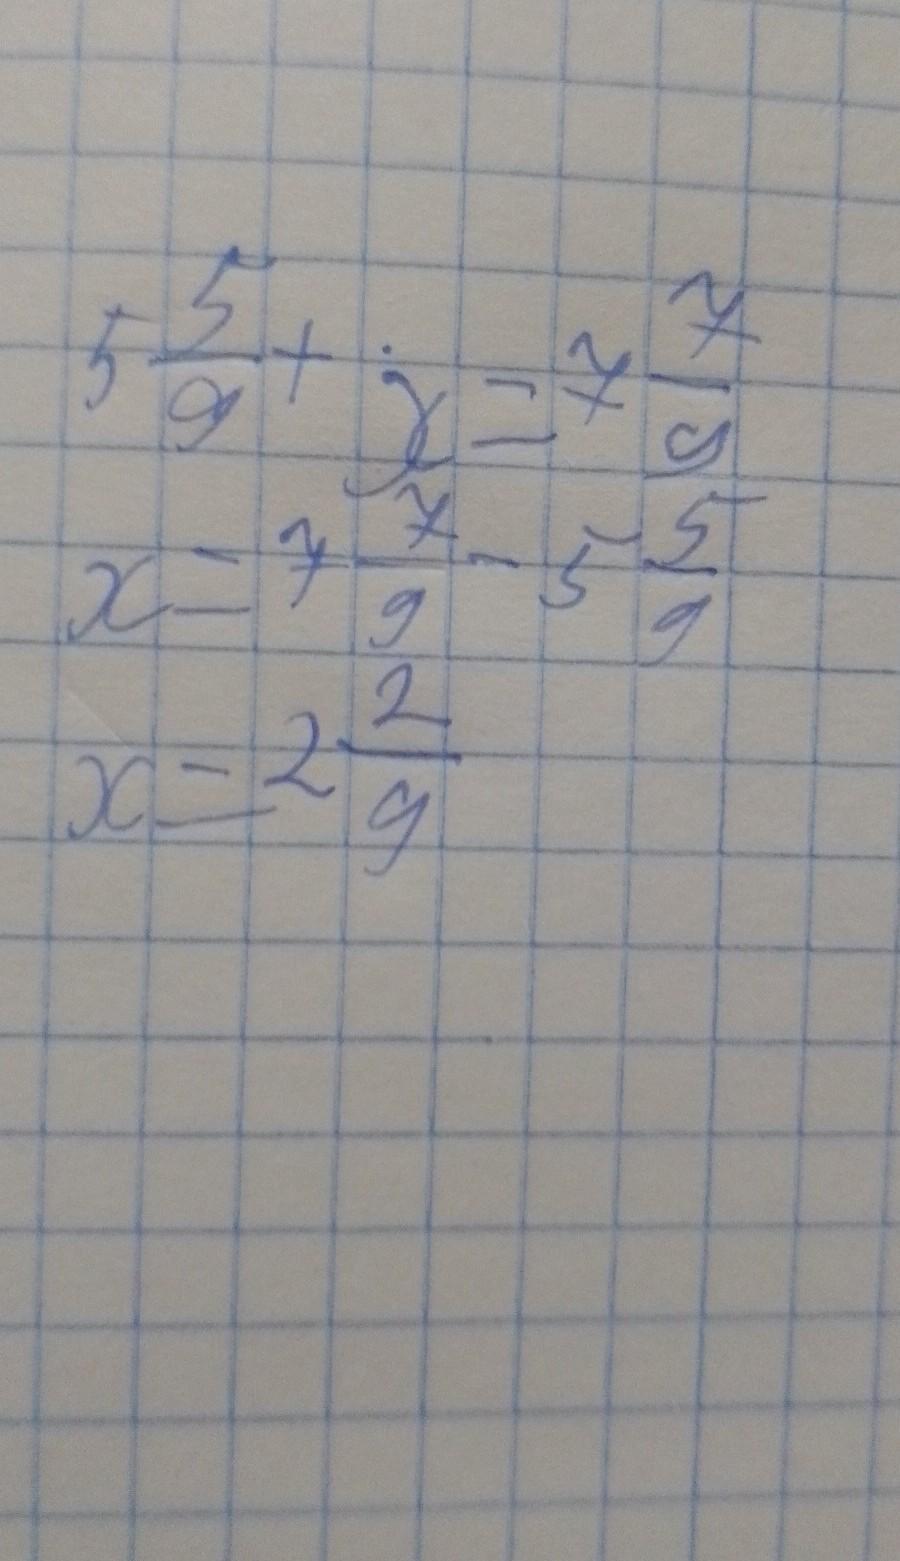 5 5/9 + x = 7 7/9
x = 7 7/9 - 5 5/9
x = 2 2/9